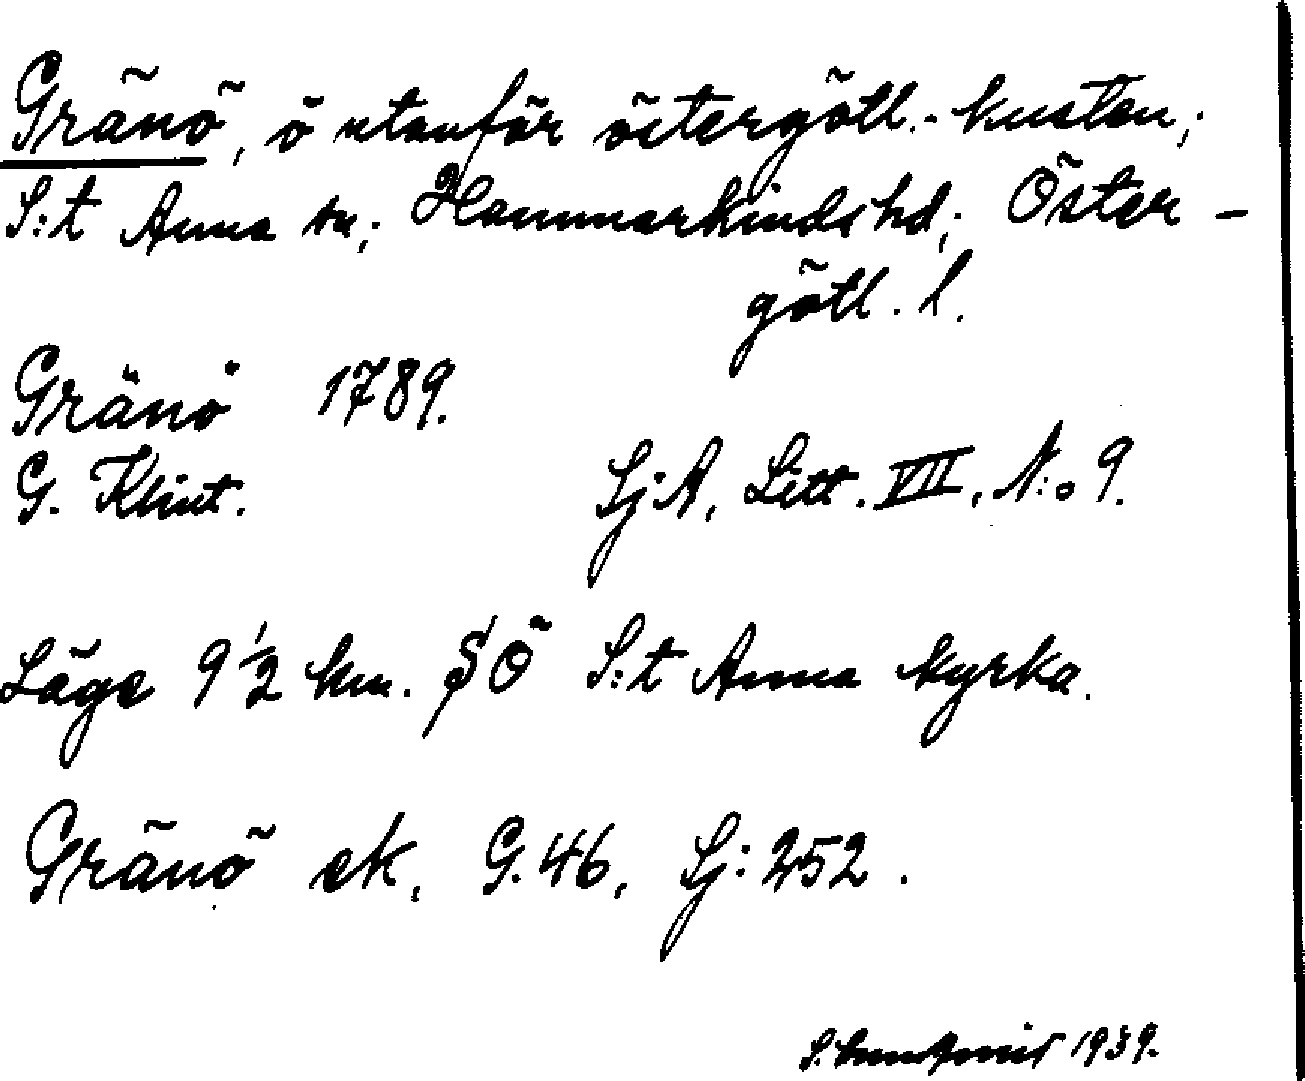 Gränö, ö utanför östergötl.-kusten;
S:t Anna sn; Hammarkinds hd; Öster-
götl. l.
Gränö 1789.
G. Klint. Sj A, Litt. VII, N:o 9.
Läge 9 1/2 km. SÖ S:t Anna kyrka.
Gränö ek, G. 46, Sj: 252.
S. 1939.